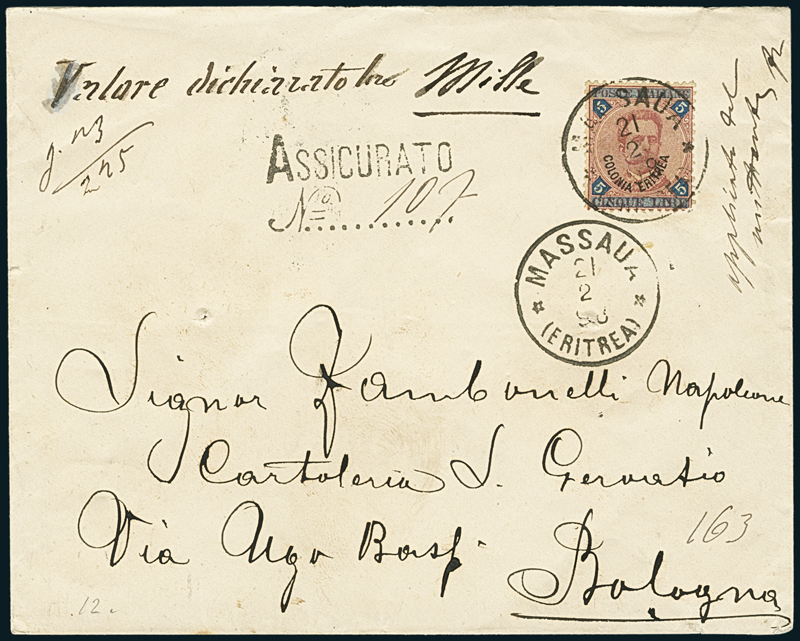 Valore dichiarato lire Mille
ASSICURATO
No 107
g. n3
225
POSTE ITALIANE
5 5
COLONIA ERITREA
5 5
CINQUE LIRE
MASSAUA
21
2
MASSAUA
21
2
(ERITREA)
del
Signor Zambonelli Napoleone
Cartoleria S. Gervasio
Via Ugo Bassi
163
Bologna
12.